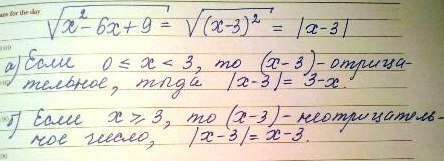 are for the day
√x²-6x+9 = √(x-3)² = |x-3|
а) Если 0 ≤ x < 3, то (x-3)-отрица-
тельное, тогда |x-3| = 3-x.
б) Если x ⩾ 3, то (x-3)-неотрицатель-
ное число, |x-3| = x-3.